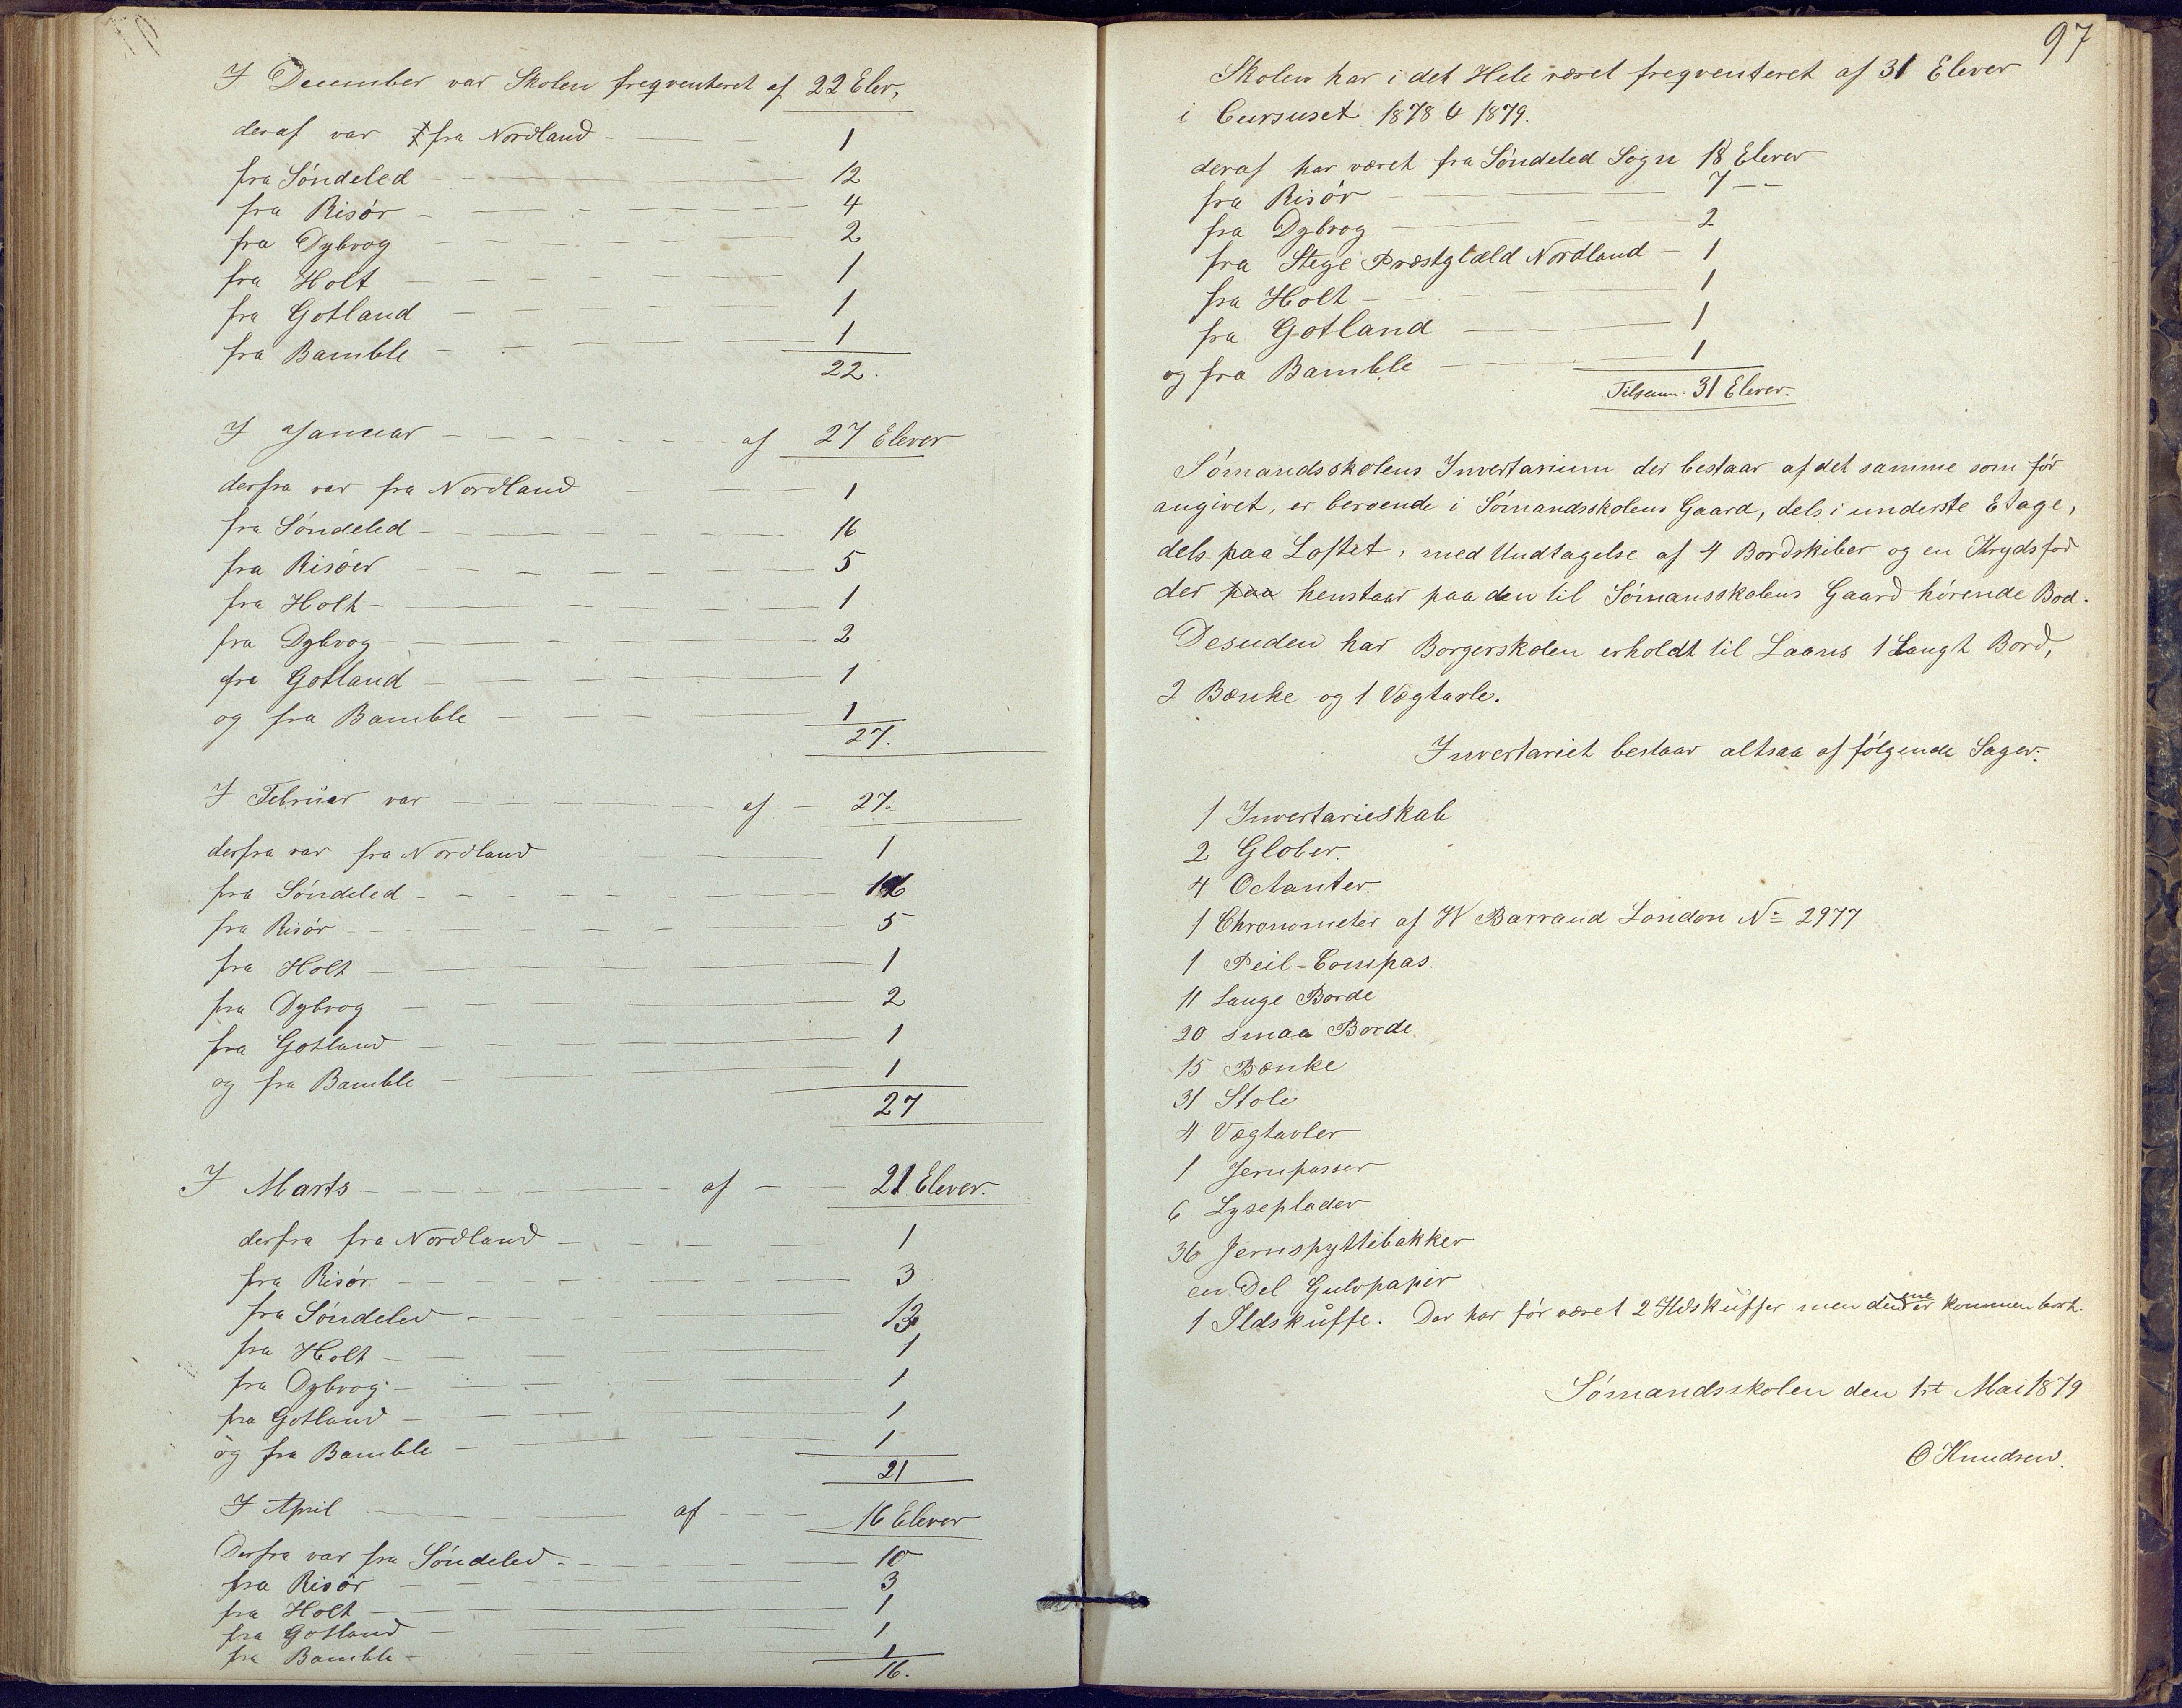 I December var Skolen freqventeret af 22 Elev,
deraf var fra Nordland - 1
fra Söndeled - 12
fra Risör - 4
fra Dybvog - 2
fra Holt - 1
fra Gotland - 1
fra Bamble - 1
22.
I Januar - af 27 Elever
derfra var fra Nordland 1
fra Söndeled - 16
fra Risöer - 5
fra Holt - 1
fra Dybvog - 2
fra Gotland - 1
og fra Bamble - 1
27.
I Februar var - af - 27.
derfra var fra Nordland 1
fra Söndeled - 16
fra Risör - 5
fra Holt - 1
fra Dybvog - 2
fra Gotland - 1
og fra Bamble - 1
27
I Marts - af - 21 Elever.
derfra fra Nordland - 1
fra Risör - 3
fra Söndeled - 13
fra Holt - 1
fra Dybvog - 1
fra Gotland - 1
og fra Bamble - 1
21
I April - af - 16 Elever
Derfra var fra Söndeled - 10
fra Risör - 3
fra Holt - 1
fra Gotland - 1
fra Bamble - 1
16.
97
Skolen har i det Hele været freqventeret af 31 Elever
i Cursuset 1878 & 1879.
deraf har været fra Söndeled Sogn 18 Elever
fra Risör - 7 --
fra Dybvog - 2
fra Stege PræstgLæld Nordland - 1
fra Holt - 1
fra Gotland - 1
og fra Bamble - 1
Tilsam- 31 Elever.
Sömandsskolens Invertarium der bestaar af det samme som för
angivet, er beroende i Sömandsskolens Gaard, dels i underste Etage,
dels paa Loftet, med Undtagelse af 4 Bordskiber og en Krydsfod
der paa henstaar paa den til Sömansskolens Gaard hörende Bod.
Desuden har Borgerskolen erholdt til Laans 1 Langt Bord,
2 Bænke og 1 Vægtavle.
Invertariet bestaar altsaa af fölgende Sager:
1 Invertarieskab
2 Glober.
4 Octanter.
1 Chronometer af W Barraud London No 2977
1 Peil-Compas.
11 Lange Borde
20 smaa Borde
15 Bænke
31 Stole
4 Vægtavler
1 Jernpasser
6 Lyseplader
36 Jernspyttebakker
en Del Gulvpapir
1 Ildskuffe. Der har för været 2 Ildskuffer men den ene er kommen bort.
Sömandsskolen den 1st Mai 1879
O Knudsen.